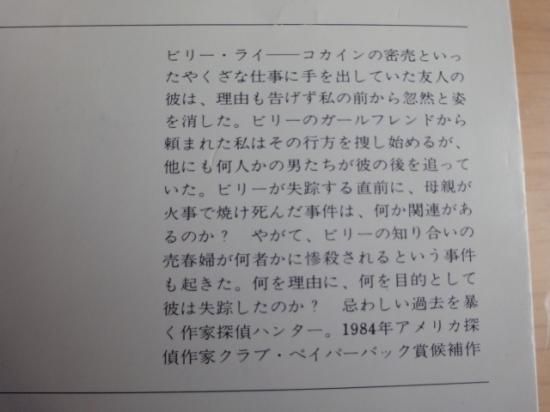 ビリー・ライ――コカインの密売といっ
たやくざな仕事に手を出していた友人の
彼は、理由も告げず私の前から忽然と姿
を消した。ビリーのガールフレンドから
頼まれた私はその行方を捜し始めるが、
他にも何人かの男たちが彼の後を追って
いた。ビリーが失踪する直前に、母親が
火事で焼け死んだ事件は、何か関連があ
るのか？　やがて、ビリーの知り合いの
売春婦が何者かに惨殺されるという事件
も起きた。何を理由に、何を目的として
彼は失踪したのか？　忌わしい過去を暴
く作家探偵ハンター。1984年アメリカ探
偵作家クラブ・ペイパーバック賞候補作